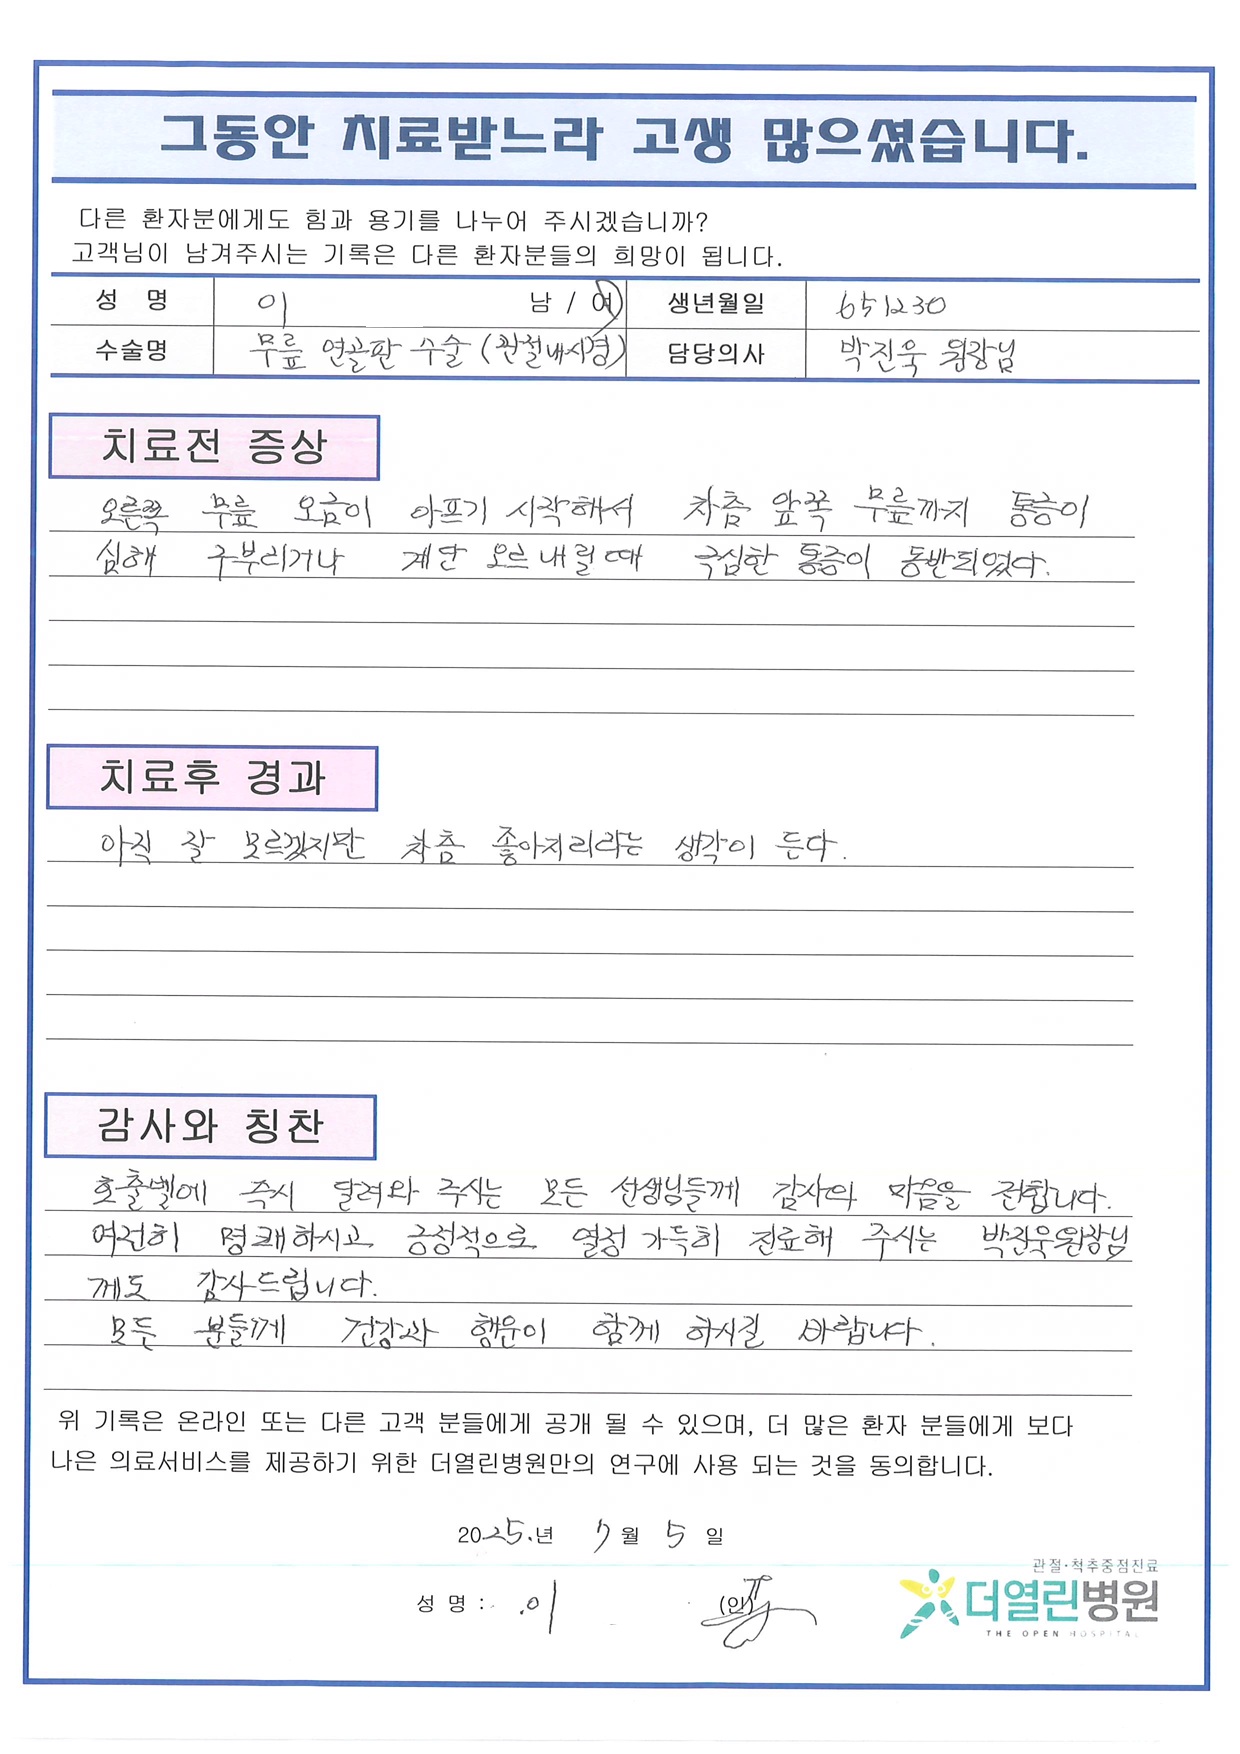 그동안 치료받느라 고생 많으셨습니다.
다른 환자분에게도 힘과 용기를 나누어 주시겠습니까?
고객님이 남겨주시는 기록은 다른 환자분들의 희망이 됩니다.
성 명 이 남 / 여 생년월일 651230
수술명 무릎 연골판 수술 (관절내시경) 담당의사 박진욱 원장님
치료전 증상
오른쪽 무릎 오금이 아프기 시작해서 차츰 앞쪽 무릎까지 통증이
심해 구부리거나 계단 오르내릴때 극심한 통증이 동반되었다.
치료후 경과
아직 잘 모르겠지만 차츰 좋아지리라는 생각이 든다.
감사와 칭찬
호출벨에 즉시 달려와 주시는 모든 선생님들께 감사의 마음을 전합니다.
여전히 명쾌하시고 긍정적으로 열정 가득히 진료해 주시는 박진욱원장님
께도 감사드립니다.
모든 분들께 건강과 행운이 함께 하시길 바랍니다.
위 기록은 온라인 또는 다른 고객 분들에게 공개 될 수 있으며, 더 많은 환자 분들에게 보다
나은 의료서비스를 제공하기 위한 더열린병원만의 연구에 사용 되는 것을 동의합니다.
2025.년 7월 5일
성 명 : 이 (인)
관절·척추중점진료
더열린병원
THE OPEN HOSPITAL